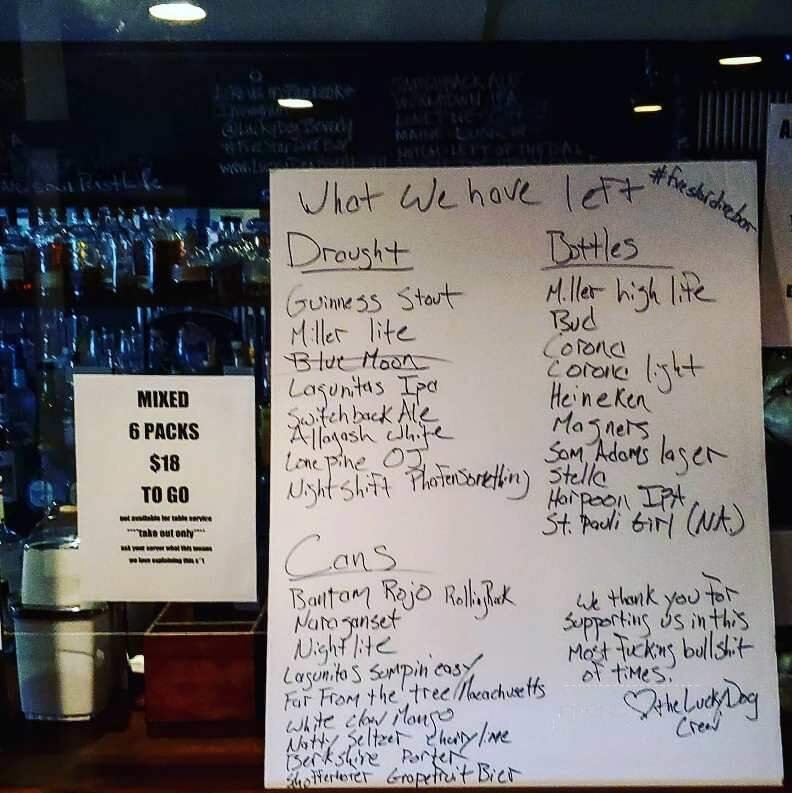 @LuckyDogBeverly
#FiveStarDiveBar
What We have left
#fivestardivebar
Draught
Guinness Stout
Miller lite
Blue Moon
Lagunitas Ipa
Switchback Ale
Allagash white
Lone pine OJ
Night Shift Phafensomething
Bottles
Miller high life
Bud
Corona
Corona light
Heineken
Magners
Sam Adams lager
Stella
Harpoon IPA
St. Pauli Girl (N.A.)
Cans
Bantam Rojo Rolling Rock
Naraganset
Night lite
Lagunitas Sumpin easy
Far From the tree / Macachusetts
White claw Mango
Natty Seltzer cherry/lime
Berkshire Porter
Shofferhofer Grapefruit Bier
We thank you for
supporting us in this
Most fucking bullshit
of times.
♡ the Lucky Dog
Crew
MIXED
6 PACKS
$18
TO GO
not available for table service
****take out only****
ask your server what this means
we love explaining this s*t